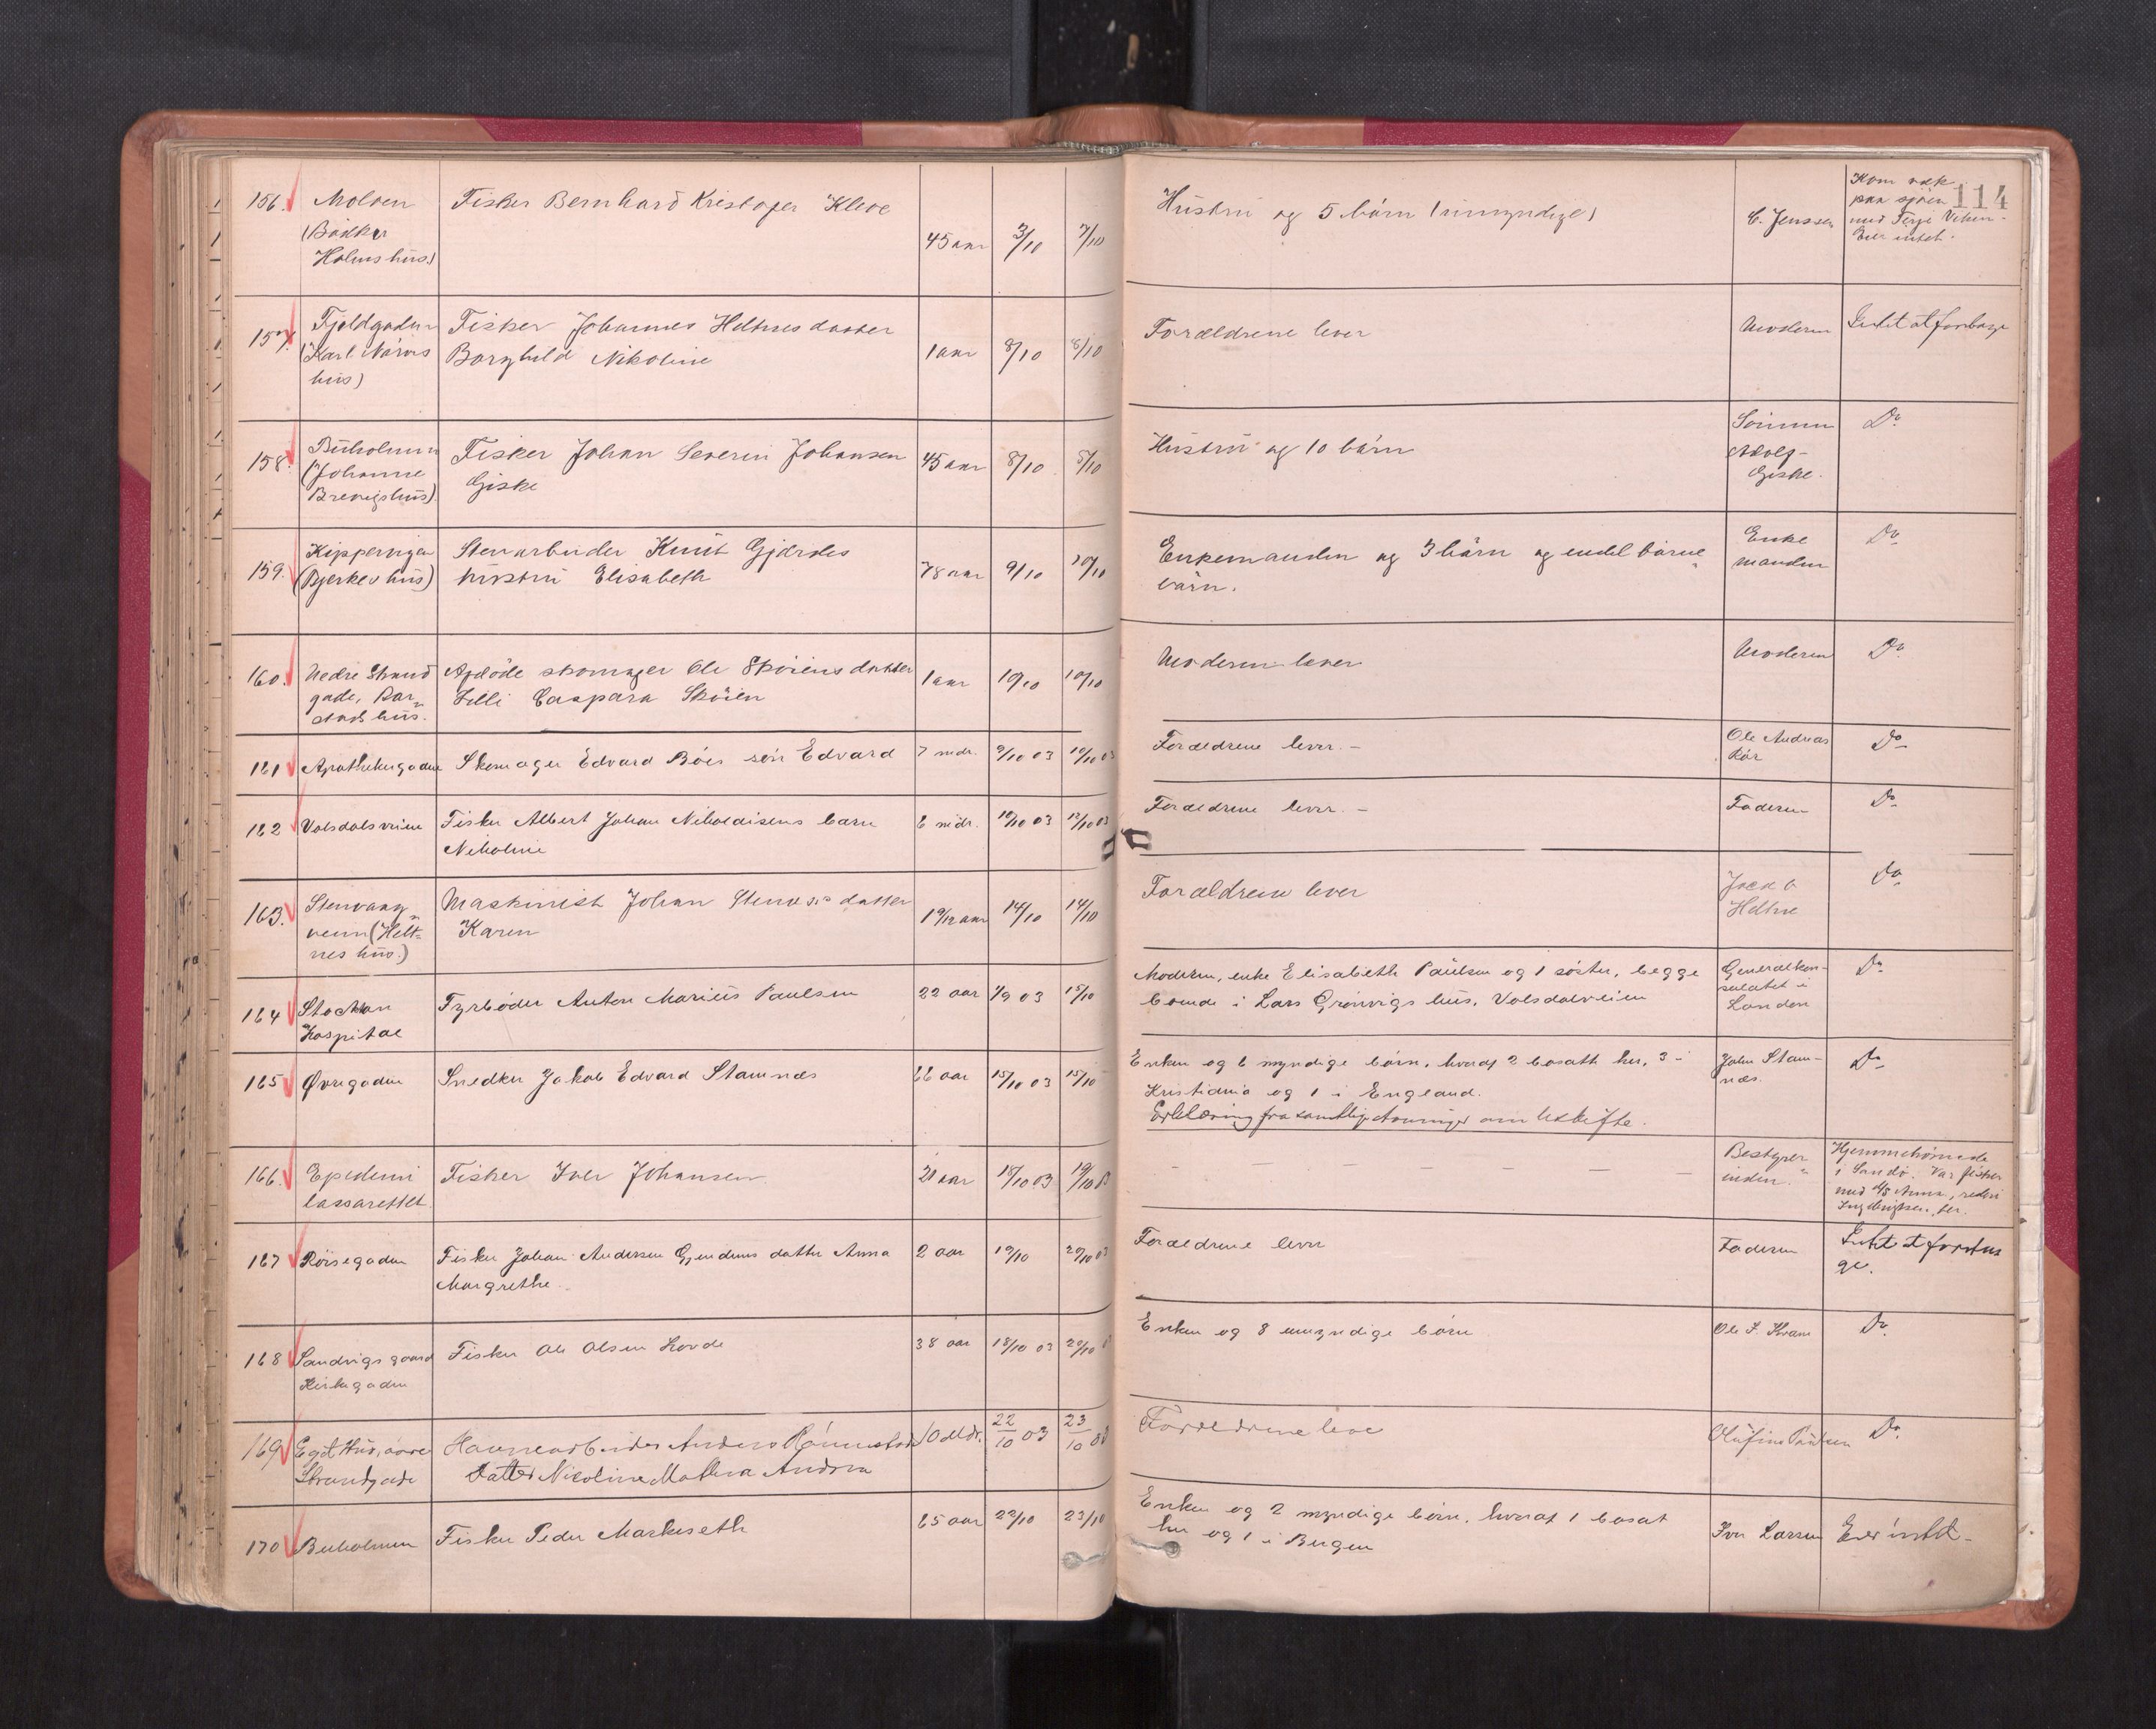 114
156. Molven Fisker Bernhard Kristofer Kleve
(Bakker
Holms hus.) 45 aar 3/10 7/10
Hustru og 5 børn (umyndige) C. Jenssen
Kom væk
paa sjøen
med Terje Viken.
Eier intet.
157. Fjeldgaden Fisker Johannes Heltnes datter
(Karl Nørves Borghild Nikoline 1 aar 8/10 8/10
hus)
Forældrene lever Moderen Intet at forlange
158. Buholmen Fisker Johan Severin Johansen 45 aar 8/10 8/10
(Johanne Giske
Brevigs hus)
Hustru og 10 børn Sønnen Do
Adolf
Giske.
159. Kippervigen Stenarbeider Knut Gjærdes
(Bjerkev hus) hustru Elisabeth 78 aar 9/10 10/10
Enkemanden og 3 børn og endel børne
børn.
Enke Do
manden
160. Nedre Strand Afdøde skomager Ole Skøiens datter
gade, Rar Lilli Caspara Skøien 1 aar 10/10 10/10
stads hus.
Moderen lever Moderen Do
161 Apothekergaden Skomager Edvard Bøes søn Edvard 7 mdr. 9/10 03 10/10 03
Forældrene lever. - Ole Andreas Do
Rør
162 Volsdalsveien Fisker Albert Johan Nikolaisens barn 6 mdr. 10/10 03 12/10 03
Nikoline
Forældrene lever. - Faderen Do
163. Stenvaag Maskinist Johan Stenes's datter
veien (Helt- Karen 1 9/12 aar 14/10 14/10
nes hus.)
Forældrene lever Jacob Do
Heltne
164 Fyrbøder Anton Marius Paulsen 22 aar 1/9 03 15/10
Hospital
Moderen, enke Elisabeth Paulsen og 1 søster, begge
boende i Lars Grønvigs hus, Volsdalsveien
Generalkon- Do
sulatet i
London
165 Øvregaden Snedker Jakob Edvard Stamnæs 66 aar 15/10 03 15/10
Enken og 6 myndige børn, hvoraf 2 bosatt her, 3 i
Kristiania og 1 i England.
Erklæring fra samtlige Arvinger om Udskifte.
John Stam- Do
næs.
166. Epidemi Fisker Iver Johansen 21 aar 18/10 03 19/10 03
lassarettet
— — — — — — — Bestyrer
inden.
Hjemmehørende
i Sandø. Var fisker
med d/s Anna, rederi
Ingebrigtsen, her.
167 Røisegaden Fisker Johan Andersen Gjendems datter Anna 2 aar 19/10 20/10 03
Margrethe.
Forældrene lever Faderen Intet at forlan
ge.
168 Sandvigs gaard Fisker Ole Olsen Hovde 38 aar 18/10 03 20/10
Kirkegaden
Enken og 8 umyndige børn Ole J. Kvam Do
169 Eget Hus, øvre Havnearbeider Anders Rønnestads 10 Mdr. 22/10 03 23/10 03
Strandgade Datter Nicoline Mathea Andrea
Forældrene leve Olufine Paulsen Do
170 Buholmen Fisker Peder Markuseth 65 aar 22/10 23/10
Enken og 2 myndige børn, hvoraf 1 bosat
her og 1 i Bergen Iver Larsen Eier intet -